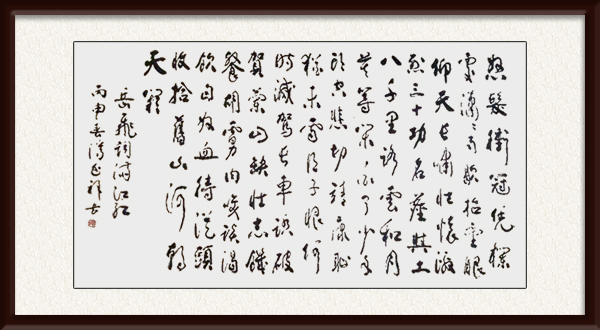 怒髮衝冠凭欄
處瀟瀟雨歇抬望眼
仰天長嘯壯懷激
烈三十功名塵與土
八千里路雲和月
莫等閑白了少年
頭空悲切靖康恥
猶未雪臣子恨何
時滅駕長車踏破
賀蘭山缺壯志飢
餐胡虜肉笑談渴
飲匈奴血待從頭
收拾舊山河朝
天闕
岳飛詞滿江紅
丙申春